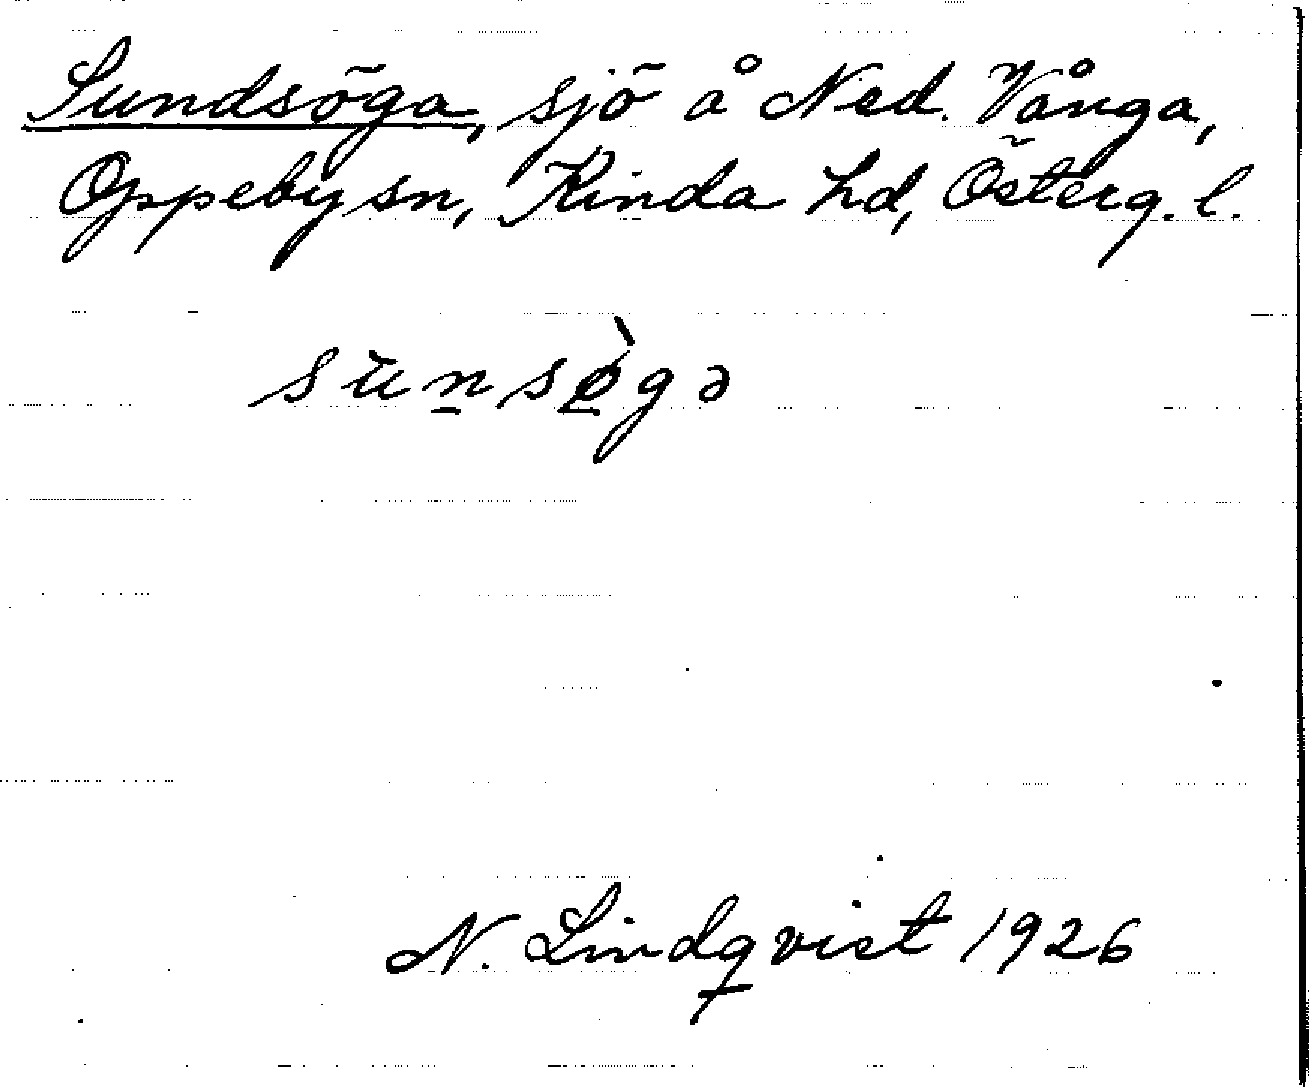 Sundsöga, sjö å Ned. Vånga,
Oppeby sn, Kinda hd, Österg. l.
sŭn̲sø̲̀gə
N. Lindqvist 1926